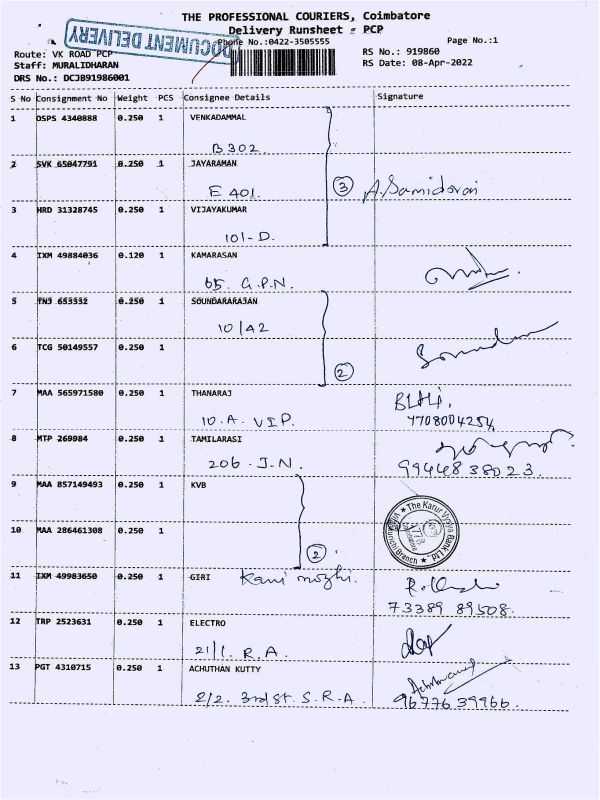 THE PROFESSIONAL COURIERS, Coimbatore
Delivery Runsheet - PCP
DOCUMENT DELIVERY
Phone No.:0422-3505555
Page No.:1
Route: VK ROAD PCP
RS No.: 919860
Staff: MURALIDHARAN
RS Date: 08-Apr-2022
DRS No.: DCJB91986001
S No Consignment No Weight PCS Consignee Details Signature
1 OSPS 4340888 0.250 1 VENKADAMMAL
B 302
2 SVK 65047791 0.250 1 JAYARAMAN
E 401.
3 A. Samidorai
3 HRD 31328745 0.250 1 VIJAYAKUMAR
101-D.
4 IXM 49884036 0.120 1 KAMARASAN
65. G.P.N.
5 TNJ 653332 0.250 1 SOUNDARARAJAN
10/42
6 TCG 50149557 0.250 1
2
7 MAA 565971580 0.250 1 THANARAJ
10.A. VIP.
7708004254
8 MTP 269984 0.250 1 TAMILARASI
206. J.N.
9944838023.
9 MAA 857149493 0.250 1 KVB
The Karur Vysya Bank Ltd
Branch
10 MAA 286461308 0.250 1
2
11 IXM 49983650 0.250 1 GIRI Kani mozhi.
73389 89508.
12 TRP 2523631 0.250 1 ELECTRO
21/1. R.A.
13 PGT 4310715 0.250 1 ACHUTHAN KUTTY
2/2. 3rd St. S.R.A.
9677639966.